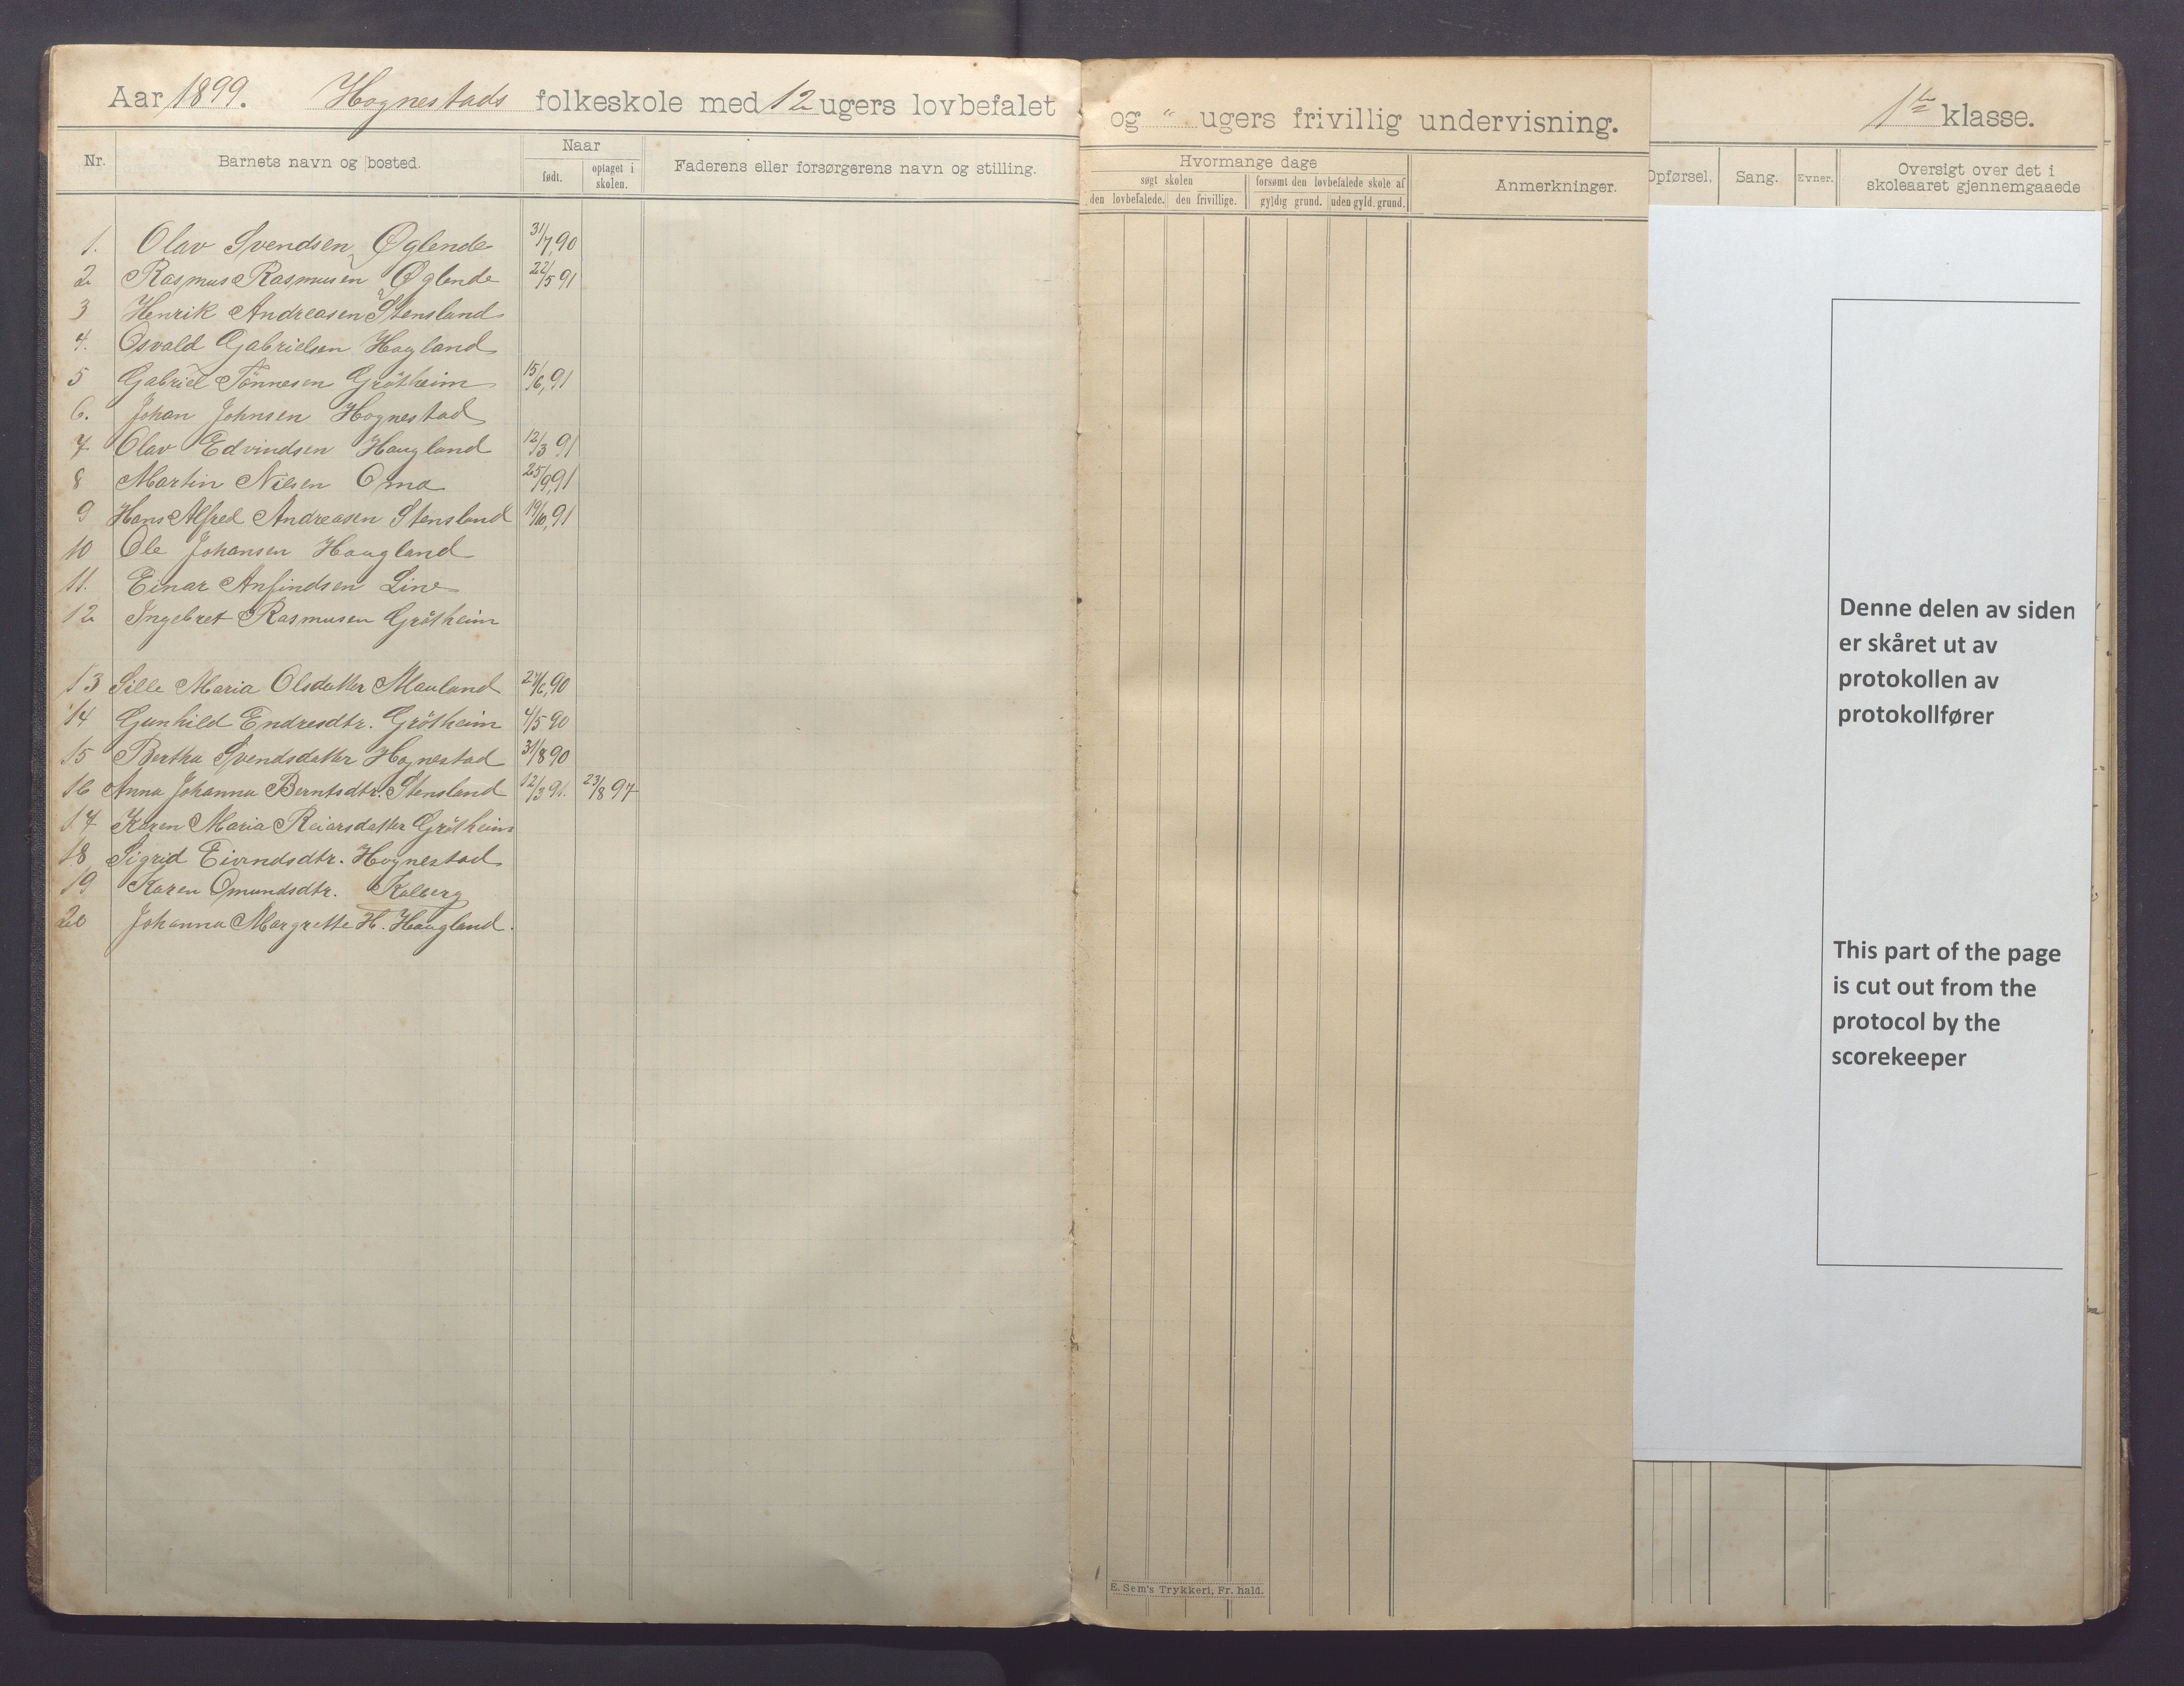 Aar 1899. Hognestads folkeskole med 12 ugers lovbefalet og " ugers frivillig undervisning. 1ste klasse.
Nr. Barnets navn og bosted. Naar født. optaget i skolen. Faderens eller forsørgerens navn og stilling.
Hvormange dage søgt skolen den lovbefalede. den frivillige. forsømt den lovbefalede skole af gyldig grund. uden gyld. grund. Anmerkninger.
Opførsel. Sang. Evner. Oversigt over det i skoleaaret gjennemgaaede
1. Olav Svendsen Øglende 31/7,90
2 Rasmus Rasmusen Øglende 22/5 91
3 Henrik Andreasen Stensland
4. Osvald Gabrielsen Hogland
5 Gabriel Tönnesen Grötheim 15/6,91
6. Johan Johnsen Hognestad
7 Olav Edvindsen Haugland 12/3 91
8 Martin Nilsen Oma 25/9,91
9 Hans Alfred Andreasen Stensland 19/10,91
10 Ole Johansen Haugland
11. Einar Anfindsen Line
12 Ingebret Rasmusen Grötheim
13 Sille Maria Olsdatter Mauland /6,90
14 Gunhild Endresdtr. Grötheim 4/5 90
15 Bertha Svendsdatter Hognestad 31/8 90
16 Anna Johanna Berntsdtr. Stensland 12/3 91. 23/8 97
17 Karen Maria Reiarsdatter Grötheim
18 Sigrid Eivendsdtr. Hognestad
19 Karen Omundsdtr. Kalberg
20 Johanna Margrette H. Haugland.
Denne delen av siden
er skåret ut av
protokollen av
protokollfører
This part of the page
is cut out from the
protocol by the
scorekeeper
E. Sem's Trykkeri, Fr. hald.